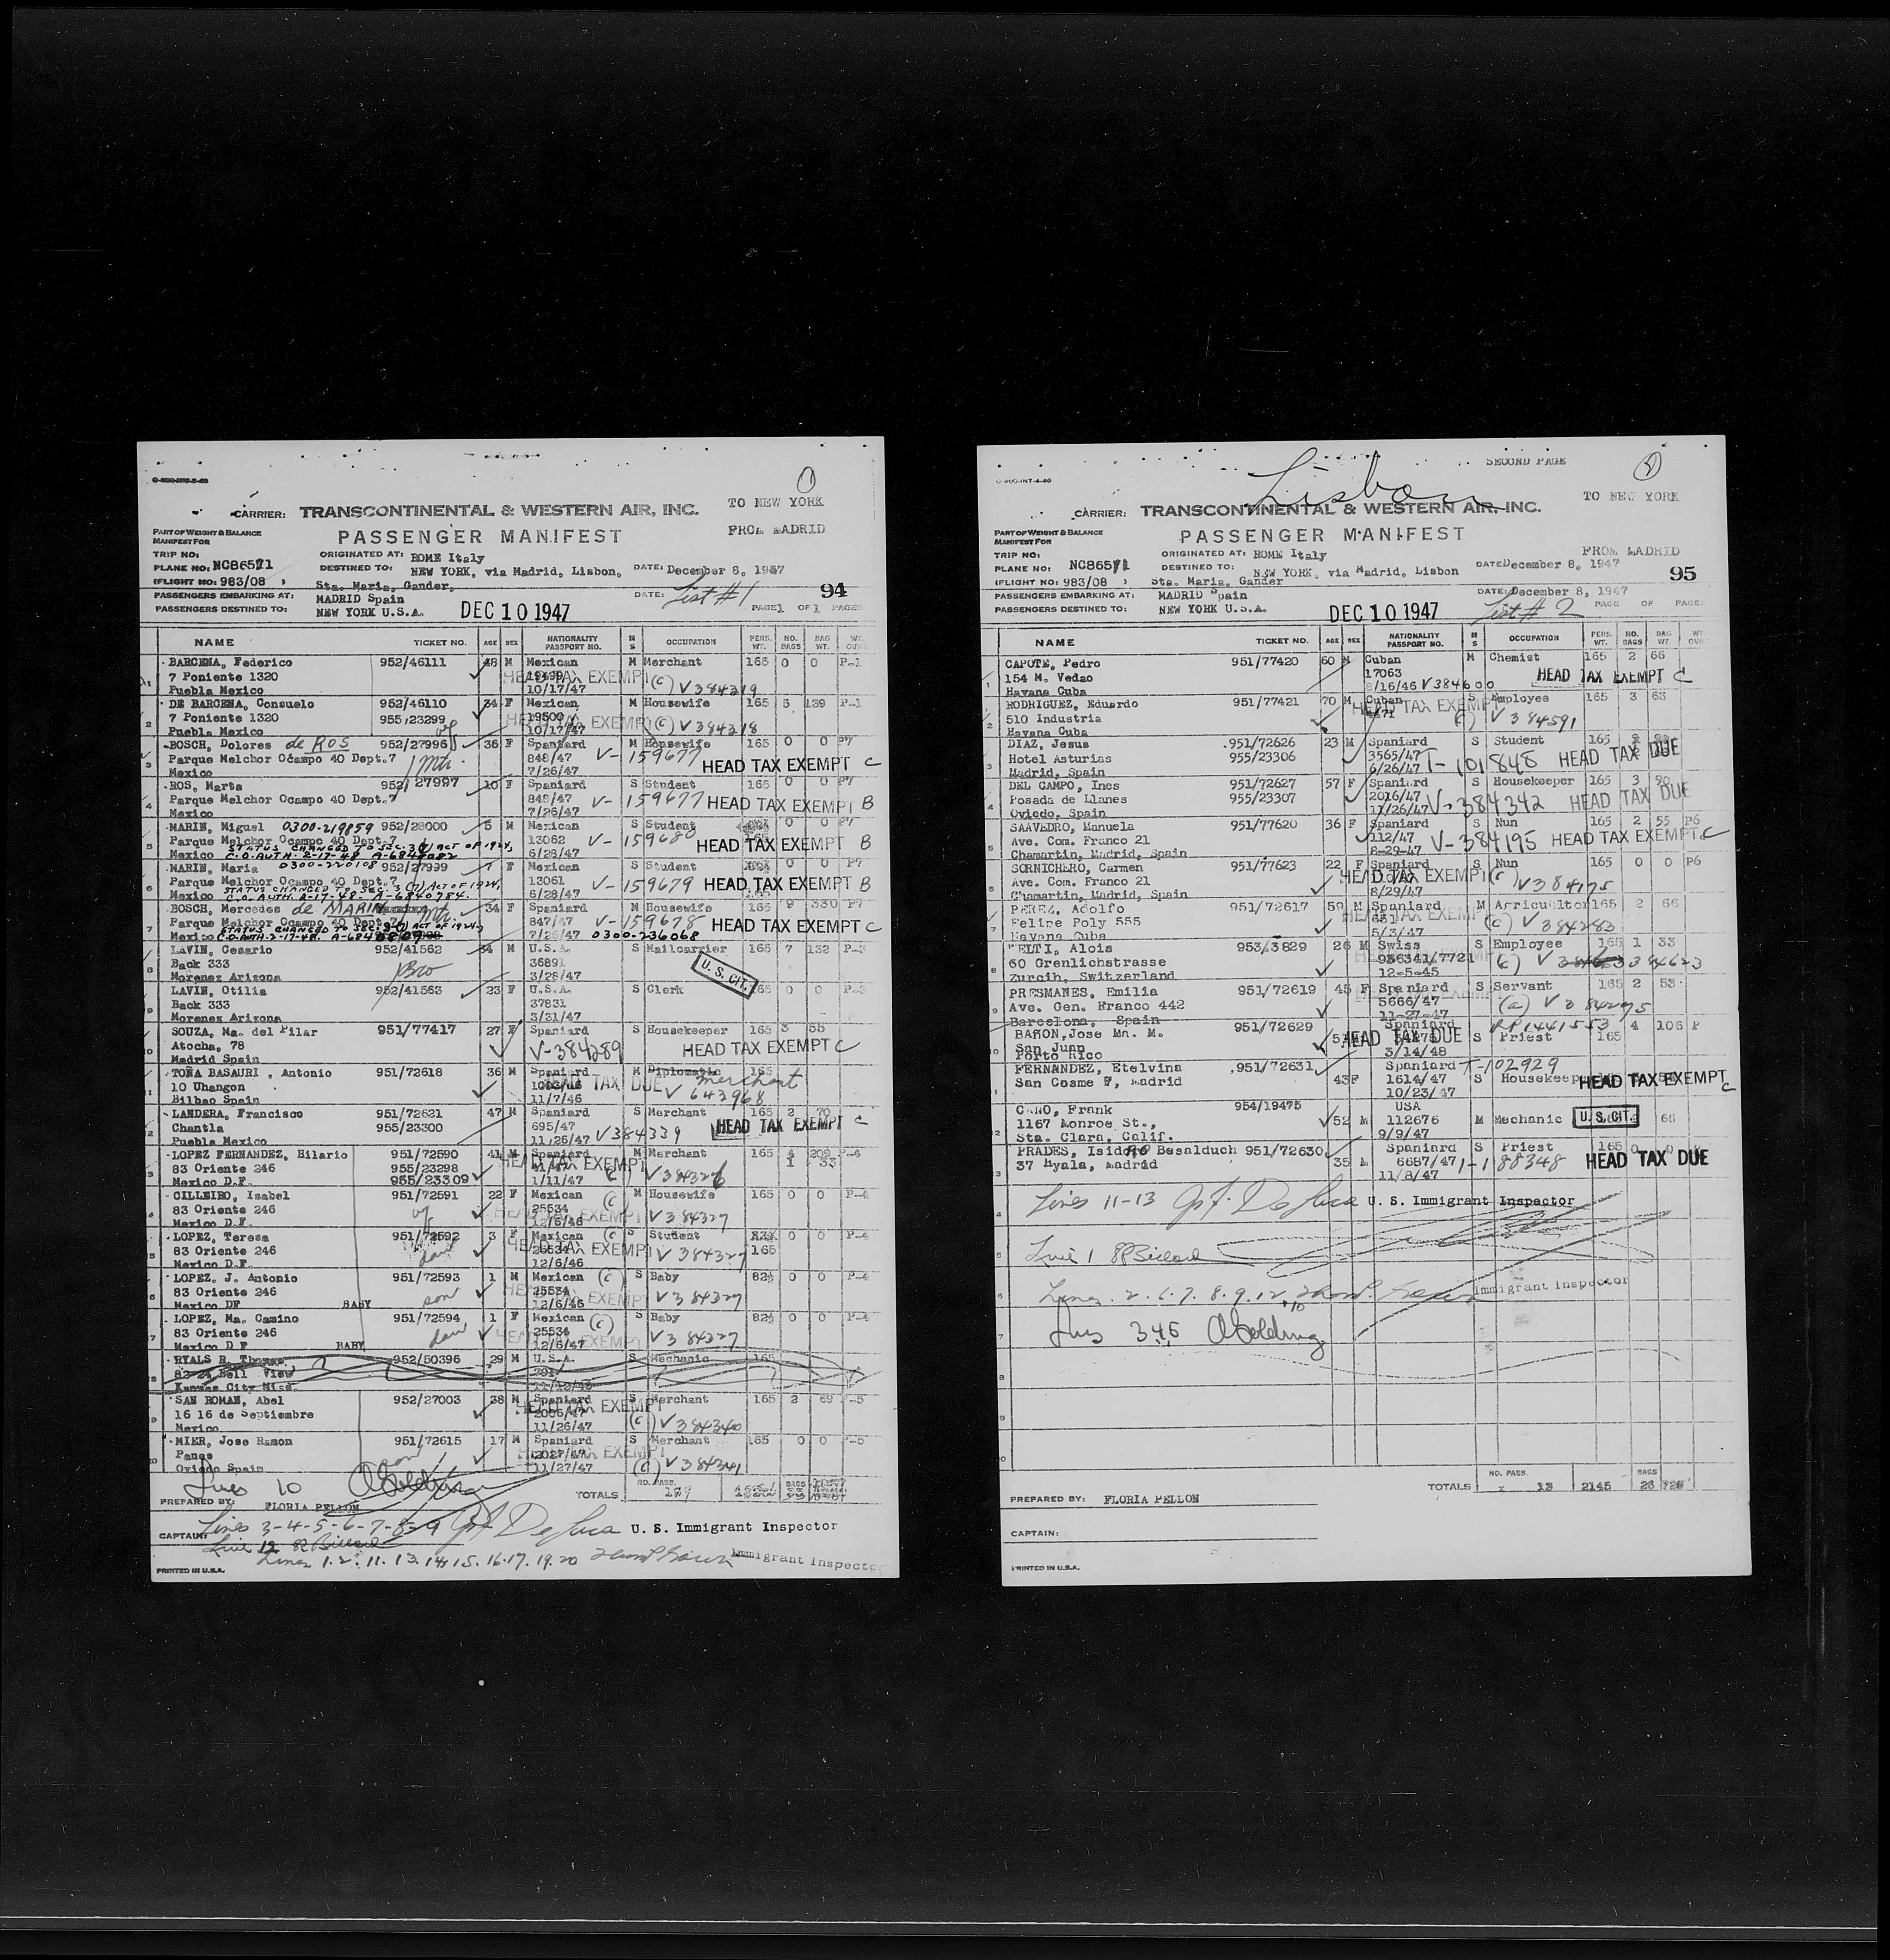 1
TO NEW YORK
CARRIER: TRANSCONTINENTAL & WESTERN AIR, INC.
FROM MADRID
PART OF WEIGHT & BALANCE MANIFEST FOR
PASSENGER MANIFEST
TRIP NO:
ORIGINATED AT: ROME Italy
PLANE NO: NC86571
DESTINED TO: NEW YORK, via Madrid, Lisbon, DATE: December 8, 1947
(FLIGHT NO: 983/08 ) Sta. Maria, Gander,
94
PASSENGERS EMBARKING AT: MADRID Spain
DATE: List #1
PASSENGERS DESTINED TO: NEW YORK U.S.A. DEC 10 1947 PAGE 1 OF 1 PAGES
NAME TICKET NO. AGE SEX NATIONALITY PASSPORT NO. M S OCCUPATION PERS. WT. NO. BAGS BAG WT.
BARCENA, Federico 952/46111 48 M Mexican M Merchant 165 0 0 P-1
7 Poniente 1320 HEAD TAX EXEMPT (C) V384319
Puebla Mexico 10/17/47
DE BARCENA, Consuelo 952/46110 34 F Mexican M Housewife 165 5 139 P-1
7 Poniente 1320 955/23299 19500 HEAD TAX EXEMPT (C) V384318
Puebla Mexico wf 10/17/47
BOSCH, Dolores de ROS 952/27996 36 F Spaniard M Housewife 165 0 0 P7
Parque Melchor Ocampo 40 Dept.7 848/47 V-159677 HEAD TAX EXEMPT C
Mexico 7/26/47
ROS, Marta 952/27997 10 F Spaniard S Student 165 0 0 P7
Parque Melchor Ocampo 40 Dept.7 848/47 V-159677 HEAD TAX EXEMPT B
Mexico 7/26/47
MARIN, Miguel 0300-219859 952/28000 5 M Mexican S Student 0 0 P7
Parque Melchor Ocampo 40 Dept.7 13062 V-159680 HEAD TAX EXEMPT B
STATUS CHANGED TO SEC. 3(7) ACT OF 1924,
Mexico C.O. AUTH. 2-17-48 6/28/47
0300-220108
MARIN, Maria 952/27999 7 F Mexican S Student 0 0 P7
Parque Melchor Ocampo 40 Dept.7 13061 V-159679 HEAD TAX EXEMPT B
STATUS CHANGED TO SEC. 3(7) ACT OF 1924,
Mexico C.O. AUTH. 2-17-48. A-6840784. 6/28/47
BOSCH, Mercedes de MARIN 34 F Spaniard M Housewife 165 9 330 P7
Parque Melchor Ocampo 40 Dept.7 847/47 V-159678 HEAD TAX EXEMPT C
STATUS CHANGED TO SEC. 3(7) ACT OF 1924,
Mexico C.O. AUTH. 2-17-48. 7/26/47 0300-236068
LAVIN, Cesario 952/41562 34 M U.S.A. S Mailcarrier 165 7 132 P-3
Back 333 Bro 36891 U.S. CIT.
Morenez Arizona 3/28/47
LAVIN, Otilia 952/41563 23 F U.S.A. S Clerk 165 0 0 P-3
Back 333 37831
Morenez Arizona 3/31/47
SOUZA, Ma. del Pilar 951/77417 27 F Spaniard S Housekeeper 165 3 55
Atocha, 78 V-384289 HEAD TAX EXEMPT C
Madrid Spain
TOÑA BASAURI , Antonio 951/72618 36 M Spaniard M Diplomatic 165
10 Uhangon HEAD TAX DUE V 643968 merchant
Bilbao Spain 11/7/46
LANDERA, Francisco 951/72621 47 M Spaniard S Merchant 165 2 70
Chantla 955/23300 695/47 HEAD TAX EXEMPT C
Puebla Mexico 11/26/47 V384339
LOPEZ FERNANDEZ, Hilario 951/72590 41 M Spaniard M Merchant 165 4 209 P-4
83 Oriente 246 955/23298 HEAD TAX EXEMPT 1 33
Mexico D.F. 955/23309 1/11/47 (C) V384326
CILLEIRO, Isabel 951/72591 22 F Mexican (C) M Housewife 165 0 0 P-4
83 Oriente 246 wf 25534 HEAD TAX EXEMPT V384327
Mexico D.F. 12/6/46
LOPEZ, Teresa 951/72592 3 F Mexican (C) S Student 0 0 P-4
83 Oriente 246 dau 25534 HEAD TAX EXEMPT V 384327 165
Mexico D.F. 12/6/46
LOPEZ, J. Antonio 951/72593 1 M Mexican (C) S Baby 82½ 0 0 P-4
83 Oriente 246 son 25534 HEAD TAX EXEMPT V384327
Mexico DF BABY 12/6/46
LOPEZ, Ma. Camino 951/72594 1 F Mexican (C) S Baby 82½ 0 0 P-4
83 Oriente 246 dau 25534 HEAD TAX EXEMPT V384327
Mexico D F BABY 12/6/47
RYALS R. Thomas, 952/50396 29 M U.S.A. S Mechanic 165
Bell View
Kansas City
SAN ROMAN, Abel 952/27003 38 M Spaniard S Merchant 165 2 69 P-5
16 16 de Septiembre HEAD TAX EXEMPT
Mexico 11/26/47 (C) V384340
MIER, Jose Ramon 951/72615 17 M Spaniard S Merchant 165 0 0 P-5
Panes 2027/47 HEAD TAX EXEMPT
Oviedo Spain 11/27/47 (C) V384341
Lines 10
NO. PASS. BAGS
TOTALS
PREPARED BY: FLORIA PELLON
Lines 3-4-5-6-7-8-9 U. S. Immigrant Inspector
CAPTAIN: Line 12
Lines 1.2.11.13.14.15.16.17.19.20 Immigrant Inspector
PRINTED IN U.S.A.
SECOND PAGE
2
Lisbon
TO NEW YORK
CARRIER: TRANSCONTINENTAL & WESTERN AIR, INC.
PART OF WEIGHT & BALANCE MANIFEST FOR
PASSENGER MANIFEST
FROM MADRID
TRIP NO:
ORIGINATED AT: ROME Italy
PLANE NO: NC86571
DESTINED TO: NEW YORK, via Madrid, Lisbon DATE December 8, 1947
(FLIGHT NO: 983/08 ) Sta. Maria, Gander
95
PASSENGERS EMBARKING AT: MADRID Spain DATE: December 8, 1947
PASSENGERS DESTINED TO: NEW YORK U.S.A. DEC 10 1947 List #2 PAGE OF PAGES
NAME TICKET NO. AGE SEX NATIONALITY PASSPORT NO. M S OCCUPATION PERS. WT. NO. BAGS BAG WT.
CAPOTE, Pedro 951/77420 60 M Cuban M Chemist 165 2 66
154 M. Vedao 17063 HEAD TAX EXEMPT C
Havana Cuba 8/16/46 V384600
RODRIGUEZ, Eduardo 951/77421 70 M Cuban S Employee 165 3 63
510 Industria HEAD TAX EXEMPT (C) V384591
Havana Cuba
DIAZ, Jesus 951/72626 23 M Spaniard S Student 165
Hotel Asturias 955/23306 3565/47 T-101848 HEAD TAX DUE
Madrid, Spain 6/26/47
DEL CAMPO, Ines 951/72627 57 F Spaniard S Housekeeper 165 3 90
Posada de Llanes 955/23307 2016/47 V-384342 HEAD TAX DUE
Oviedo, Spain 11/26/47
SAAVEDRO, Manuela 951/77620 36 F Spaniard S Nun 165 2 55 P6
Ave. Com. Franco 21 112/47 V-384195 HEAD TAX EXEMPT C
Chamartin, Madrid, Spain 8-29-47
SORNICHERO, Carmen 951/77623 22 F Spaniard S Nun 165 0 0 P6
Ave. Com. Franco 21 HEAD TAX EXEMPT (C)
Chamartin, Madrid, Spain 8/29/47 V384175
PEREZ, Adolfo 951/72617 59 M Spaniard M Agricultor 165 2 66
Felipe Poly 555 651 HEAD TAX EXEMPT (C) V384283
Havana Cuba 5/3/47
WELTI, Alois 953/3829 26 M Swiss S Employee 165 1 33
60 Grenlichstrasse 936341/7721 (C) V 384623
Zurcih, Switzerland 12-5-45
PRESMANES, Emilia 951/72619 45 F Spaniard S Servant 165 2 53
Ave. Gen. Franco 442 5666/47 HEAD TAX EXEMPT (C) V384275
Barcelona, Spain 11-27-47
BAÑON, Jose Ma. M. 951/72629 Spaniard RP1441553 4 106 P
San Juan HEAD TAX DUE S Priest 165
Porto Rico 3/14/48
FERNANDEZ, Etelvina 951/72631 Spaniard T-102929
San Cosme F, Madrid 43 F 1614/47 S Housekeeper HEAD TAX EXEMPT C
10/23/47
CANO, Frank 954/19475 USA
1167 Monroe St., 52 M 112676 M Mechanic U.S. CIT. 66
Sta. Clara, Calif. 9/9/47
PRADES, Isidoro Besalduch 951/72630 Spaniard S Priest 165 0 0
37 Ayala, Madrid 35 M 6687/47 HEAD TAX DUE
11/8/47
Lines 11-13 U. S. Immigrant Inspector
Line 1
Lines 2.6.7.8.9.12 Immigrant Inspector
10
Lines 3 4 5
NO. PASS. BAGS
TOTALS x 13 2145 23
PREPARED BY: FLORIA PELLON
CAPTAIN:
PRINTED IN U.S.A.